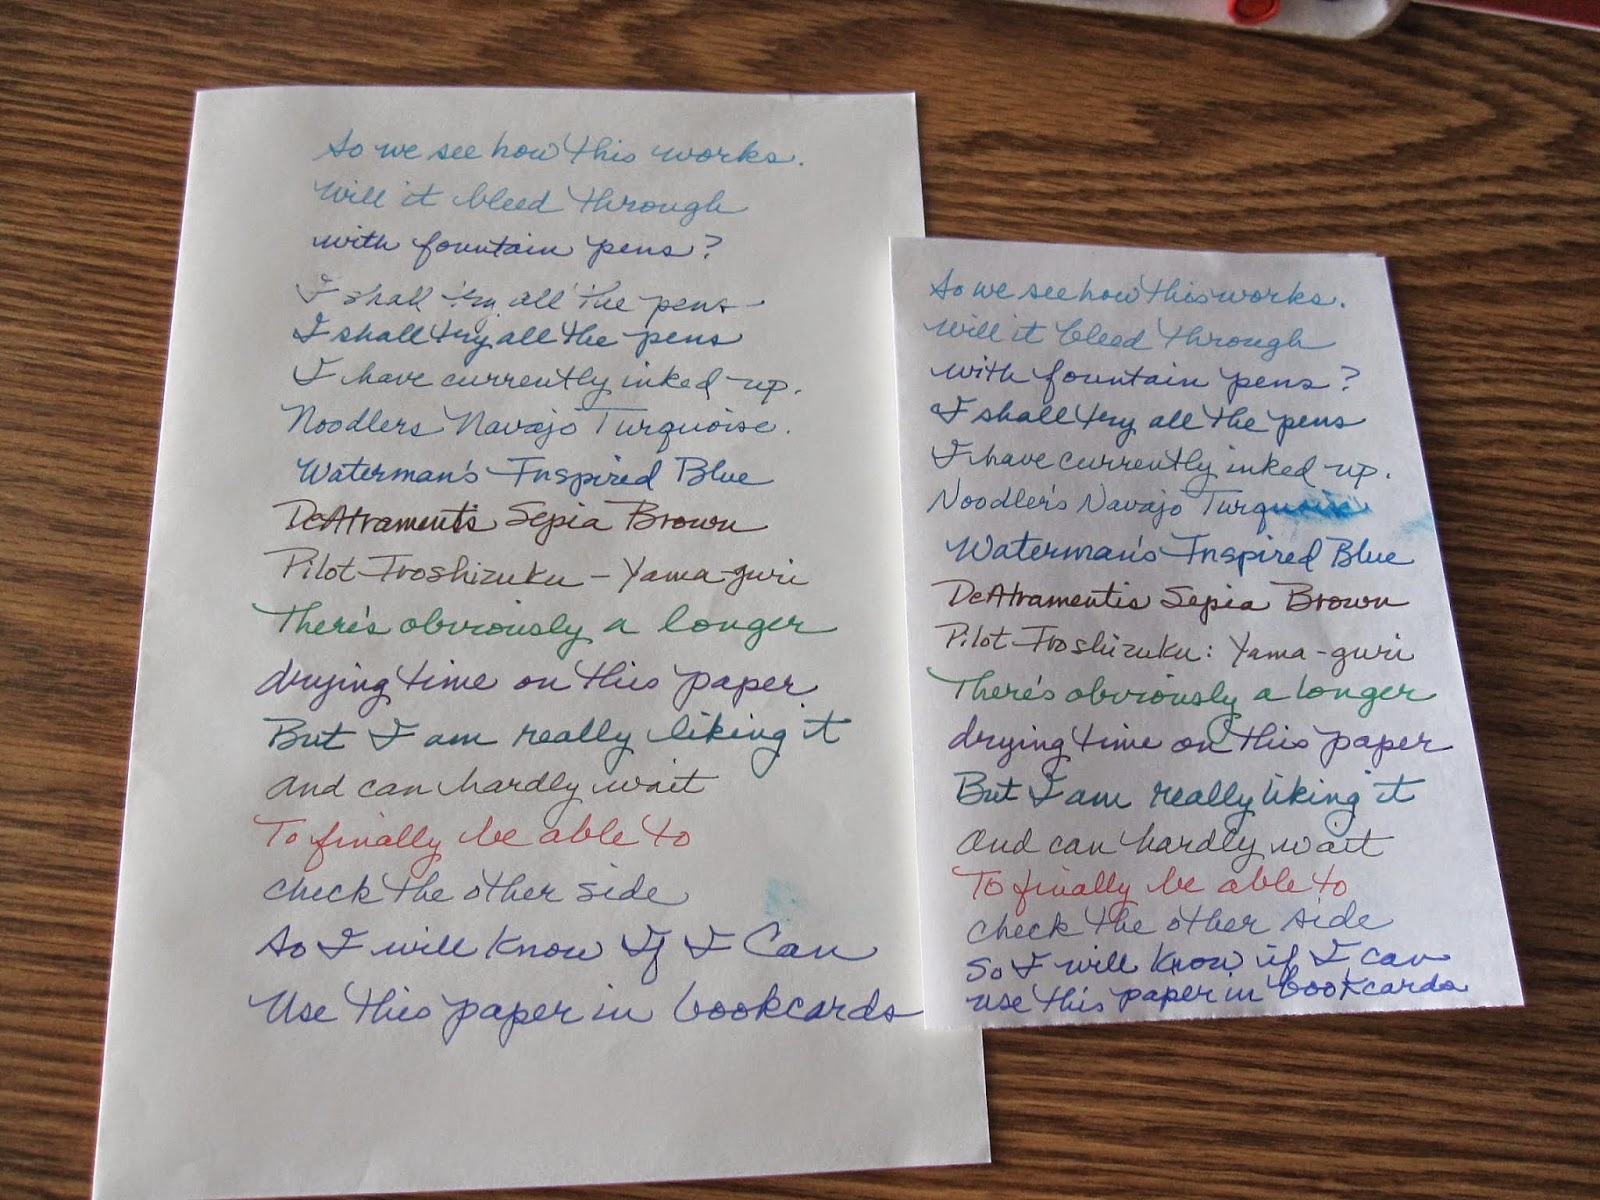 So we see how this works.
Will it bleed through
with fountain pens?
I shall try all the pens
I shall try all the pens
I have currently inked up.
Noodlers Navajo Turquoise.
Waterman's Inspired Blue
DeAtraments Sepia Brown
Pilot Iroshizuku - Yama-guri
There's obviously a longer
drying time on this paper
But I am really liking it
and can hardly wait
To finally be able to
check the other side
So I will know If I Can
Use this paper in bookcards
So we see how this works.
Will it bleed through
with fountain pens?
I shall try all the pens
I have currently inked up.
Noodler's Navajo Turquoise
Waterman's Inspired Blue
DeAtramentis Sepia Brown
Pilot Iroshizuku: Yama-guri
There's obviously a longer
drying time on this paper
But I am really liking it
and can hardly wait
To finally be able to
check the other side
So I will know if I can
use this paper in bookcards